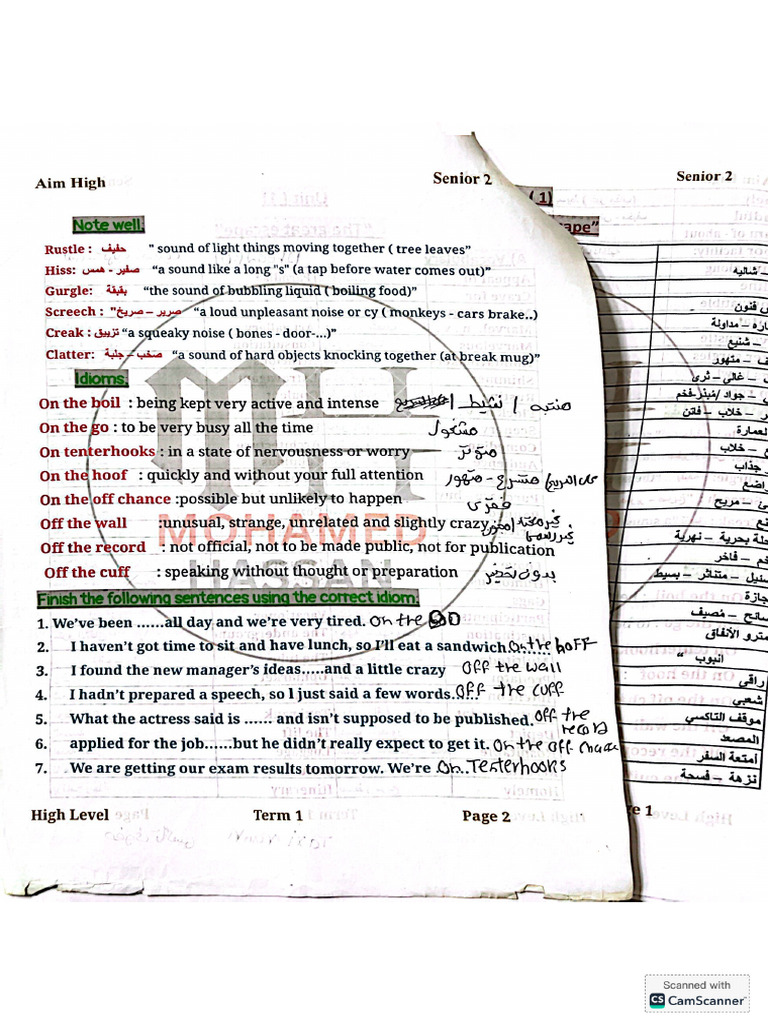 Aim High Senior 2
Note well
Rustle : حفيف " sound of light things moving together ( tree leaves”
Hiss: صفير - همس “a sound like a long "s" (a tap before water comes out)”
Gurgle: بقبقة “the sound of bubbling liquid ( boiling food)”
Screech : "صرير – صريخ “a loud unpleasant noise or cy ( monkeys - cars brake..)
Creak : تزييق “a squeaky noise ( bones - door-...)”
Clatter: صخب – جلبة “a sound of hard objects knocking together (at break mug)”
Idioms
On the boil : being kept very active and intense نشيط / منتبه
On the go : to be very busy all the time مشغول
On tenterhooks : in a state of nervousness or worry متوتر
On the hoof : quickly and without your full attention متسرع - متهور
On the off chance :possible but unlikely to happen
Off the wall :unusual, strange, unrelated and slightly crazy
Off the record : not official, not to be made public, not for publication
Off the cuff : speaking without thought or preparation بدون تحضير
MOHAMED
HASSAN
Finish the following sentences using the correct idiom:
1. We’ve been ......all day and we’re very tired. On the GO
2. I haven’t got time to sit and have lunch, so I’ll eat a sandwich on the hoFF
3. I found the new manager’s ideas.....and a little crazy OFF the wall
4. I hadn’t prepared a speech, so I just said a few words..... OFF the cuFF
5. What the actress said is ...... and isn’t supposed to be published. OFF the record
6. applied for the job......but he didn’t really expect to get it. On the OFF chance
7. We are getting our exam results tomorrow. We’re On..Tenterhooks
High Level Term 1 Page 2
Senior 2
( 1)
ape”
شالية
فنون
مداولة
شنيع
متهور
غالي – ثرى
جواد
خلاب – فاتن
العمارة
خلاب
جذاب
مريح
بحرية – نهرية
فاخر
متناثر – بسيط
سائح – مصيف
مترو الأنفاق
انبوب "
راقي
شعبي
موقف التاكسي
المصعد
امتعة السفر
نزهة – فسحة
e 1
Scanned with
CS CamScanner